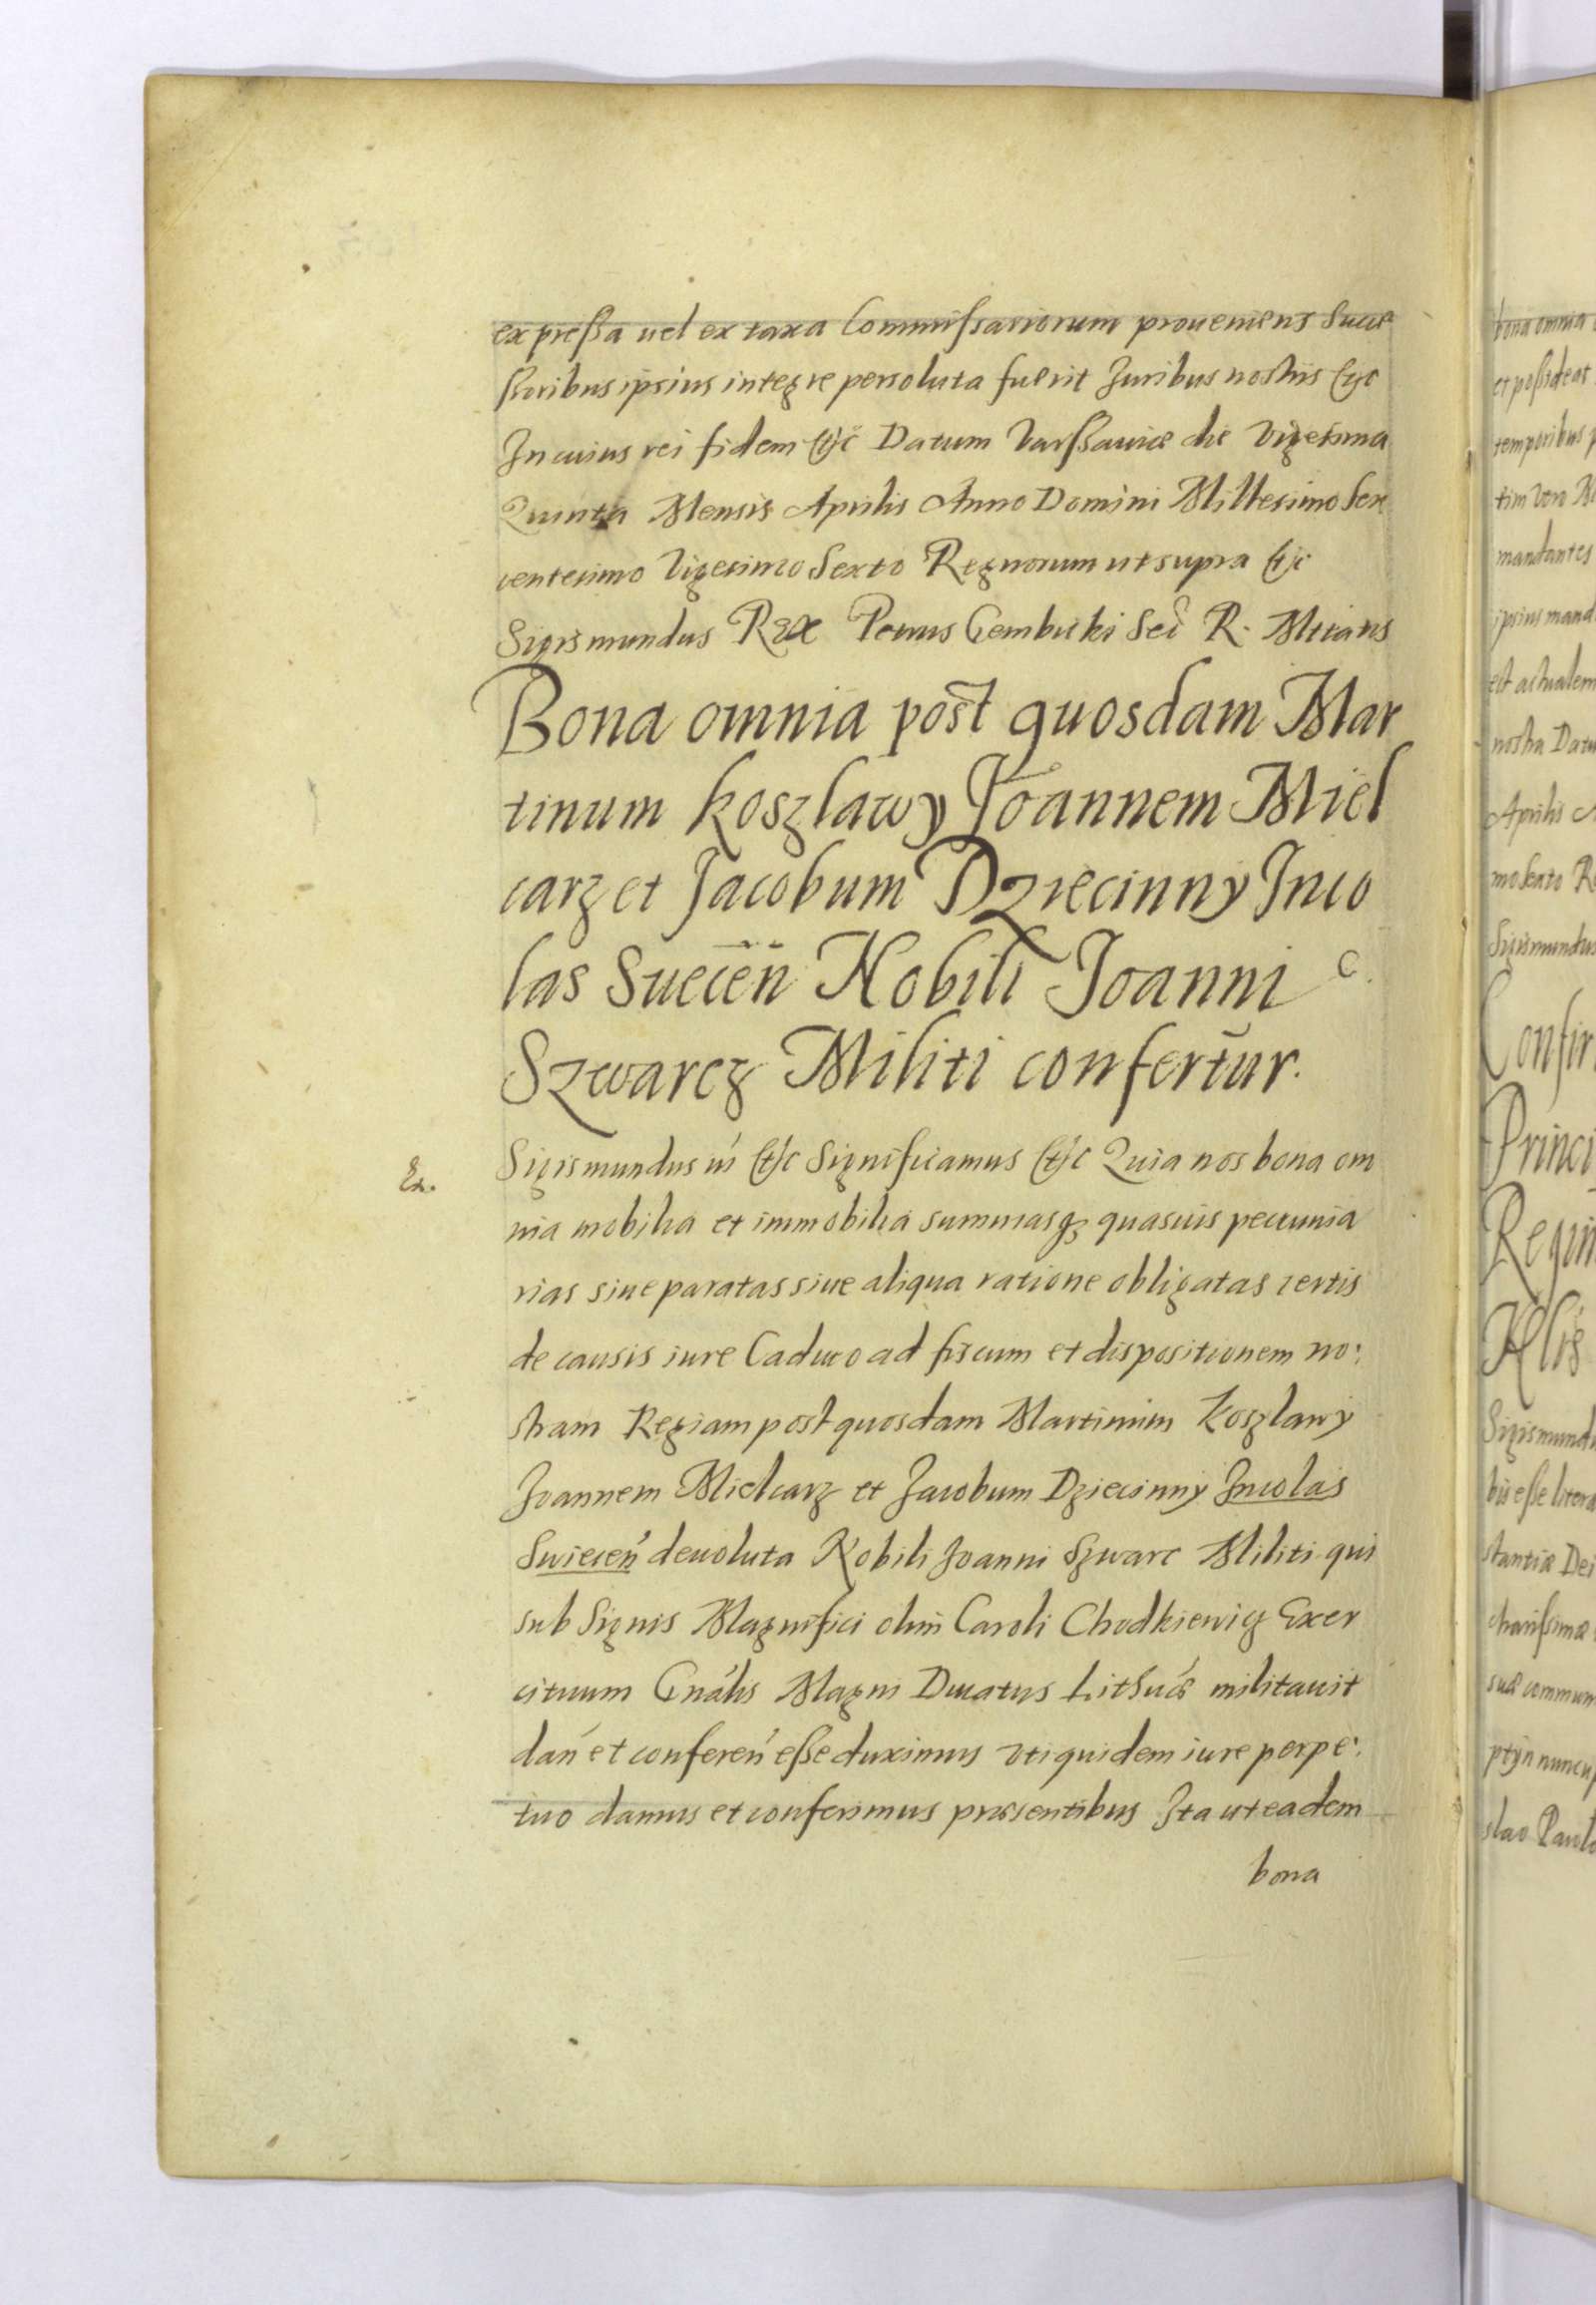 expressa uel ex taxa Commissariorum proueniens Succe
ssoribus ipsius integre persoluta fuerit Juribus nostris etc
In cuius rei fidem etc Datum Varssauiæ die Vigesima
Quinta Mensis Aprilis Anno Domini Millesimo Sex
centesimo Vigesimo Sexto Regnorum ut supra etc
Sigismundus Rex Petrus Gembicki Sec̃ R. Mttatis
Bona omnia post quosdam Mar
tinum Koszlawy Joannem Miel
carz et Jacobum Dziecinny Inco
las Suecen̄ Nobili Joanni C.
Szwarcz Militi confertur.
Ex.
Sigismundus iii etc Significamus etc Quia nos bona om
nia mobilia et immobilia summasq3 quasuis pecunia
rias siue paratas siue aliqua ratione obligatas certis
de causis iure Caduco ad fiscum et dispositionem no:
stram Regiam post quosdam Martinum Koszlawy
Joannem Mielcarz et Jacobum Dziecinny Incolas
Swiecen̄ deuoluta Nobili Joanni Szwarc Militi qui
sub Signis Magnifici olim Caroli Chodkiewicz Exer
cituum Gn̄alis Magni Ducatus Lithuæ militauit
dan̄ et conferen̄ esse duximus vti quidem iure perpe:
tuo damus et conferimus præsentibus Ita ut eadem
bona
bona omnia
et possideat
temporibus
tim vero
mandantes
ipsius mand
est actualem
nostra Datu
Aprilis
mo sexto
Sigismundus
Confir
Princi
Regin
Sigismundu
bis esse litera
stantiæ Dei
charissimæ
suæ commun
nuncu
slao Paulo